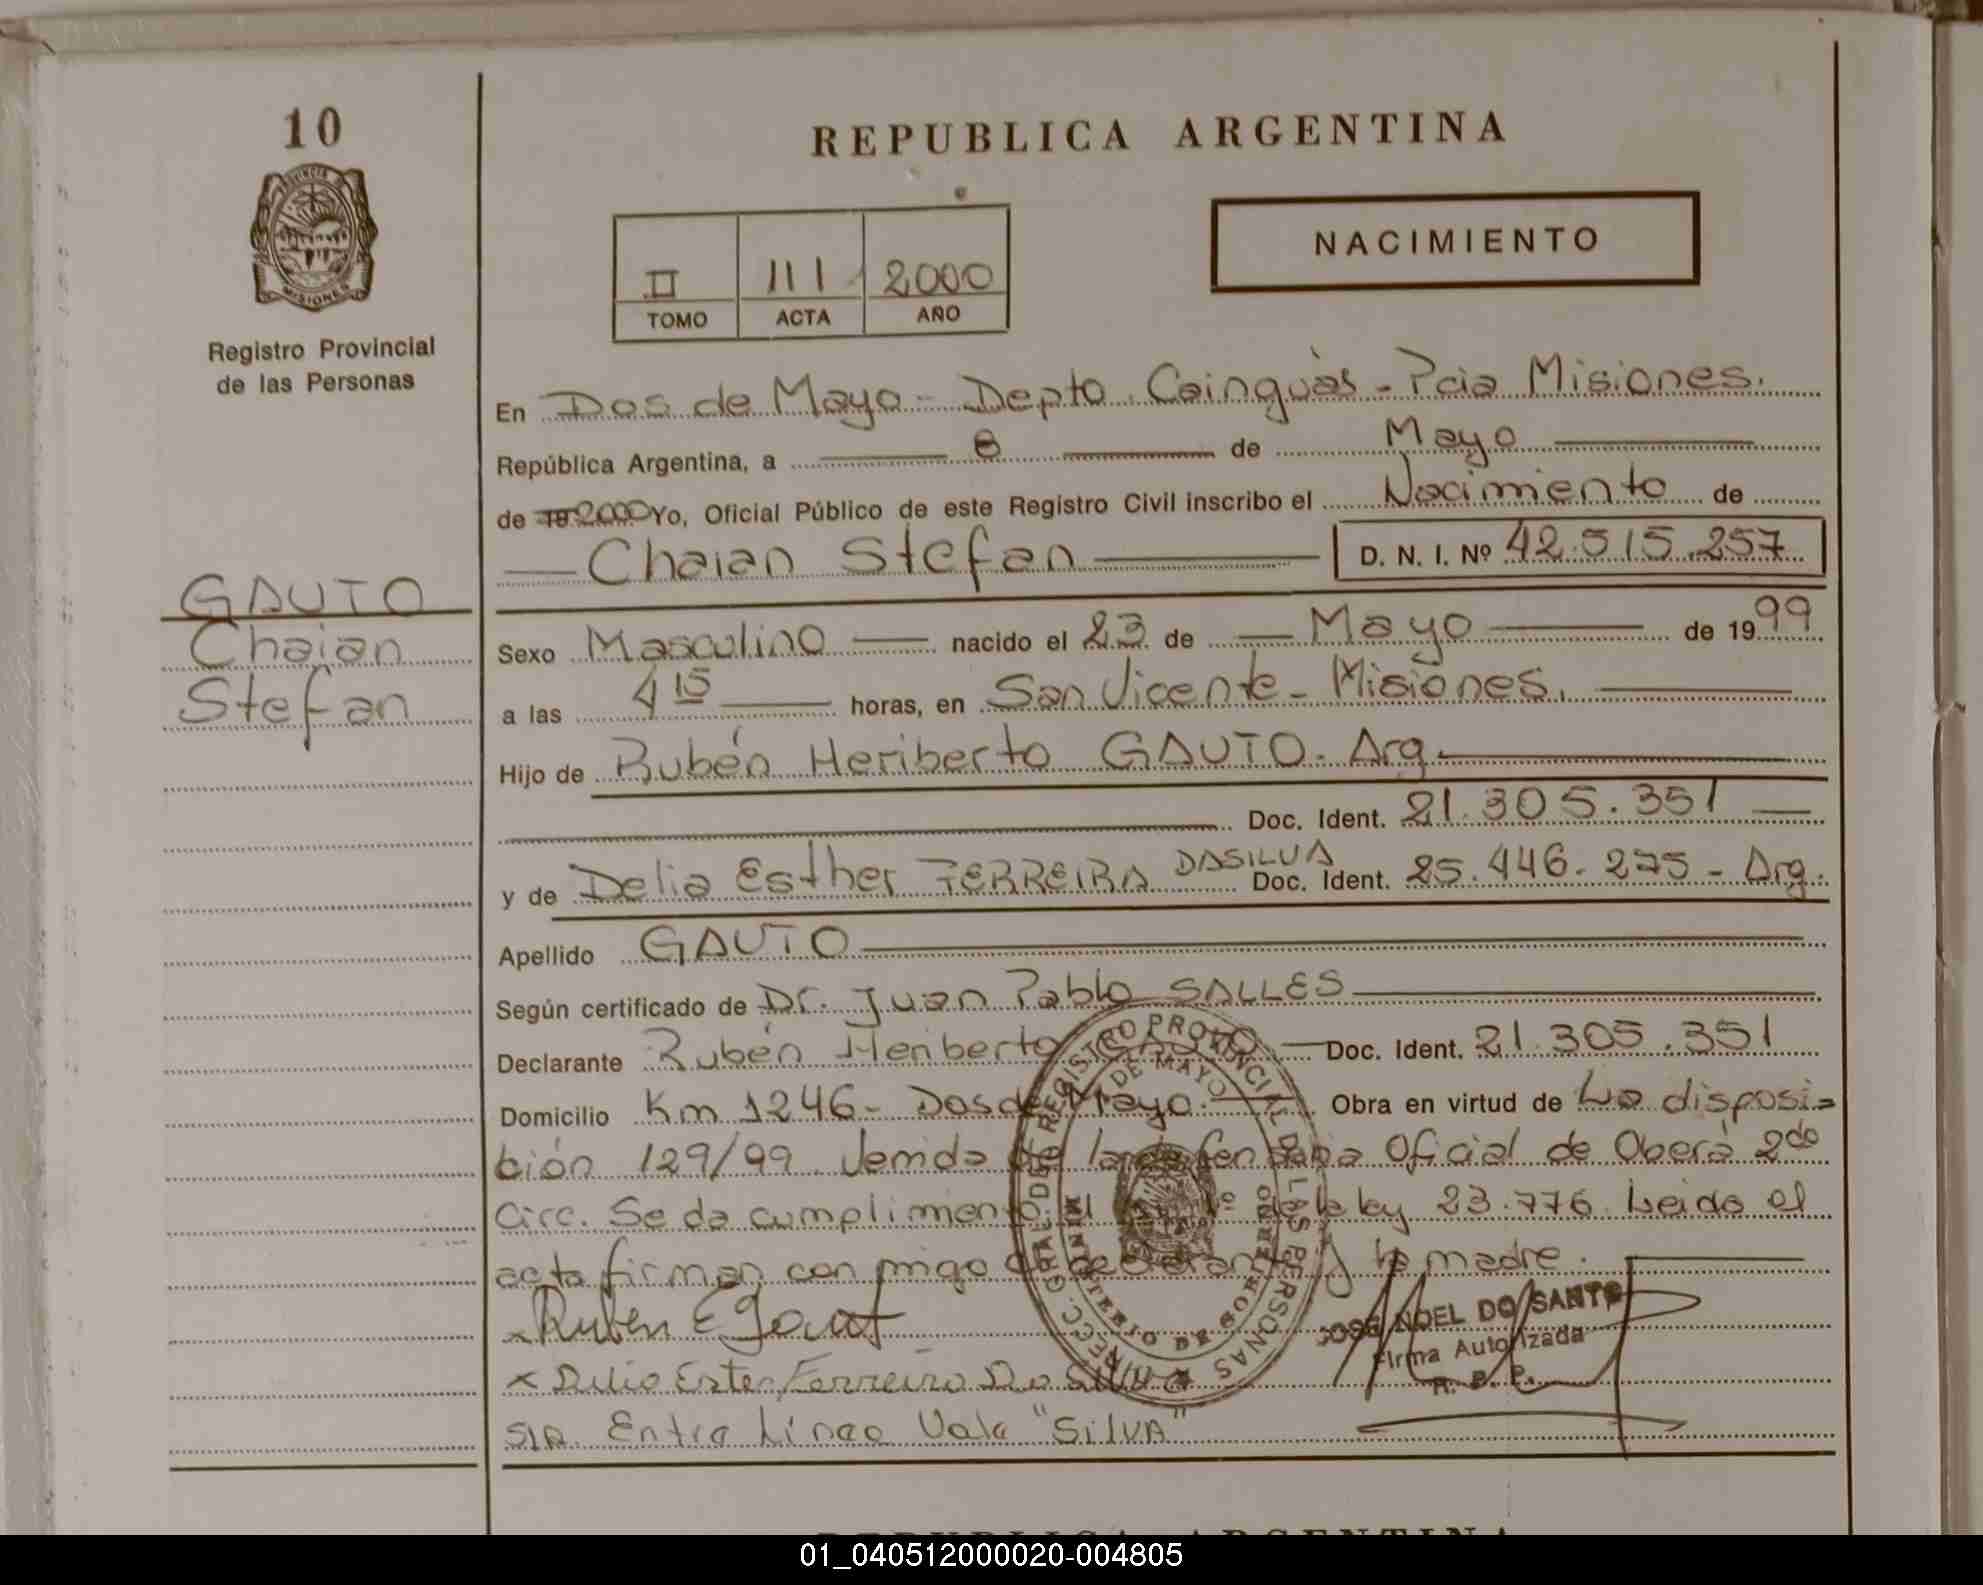 10
PROVINCIA DE
MISIONES
Registro Provincial
de las Personas
GAUTO
Chaian
Stefan
REPUBLICA ARGENTINA
NACIMIENTO
II 111 2000
TOMO ACTA AÑO
En Dos de Mayo - Depto. Cainguàs - Pcia Misiones.
República Argentina, a 8 de Mayo
de 19 2000 Yo, Oficial Público de este Registro Civil inscribo el Nacimiento de
Chaian Stefan D. N. I. Nº 42.515.257
Sexo Masculino nacido el 23 de Mayo de 1999
a las 4 15 horas, en San Vicente - Misiones.
Hijo de Rubén Heriberto GAUTO. Arg.
Doc. Ident. 21.305.351
y de Delia Esther FERREIRA DASILVA Doc. Ident. 25.446.275 - Arg.
Apellido GAUTO
Según certificado de Dr. Juan Pablo SALLES
Declarante Rubén Heriberto GAUTO Doc. Ident. 21.305.351
Domicilio Km 1246 - Dos de Mayo. Obra en virtud de La disposi=
ción 129/99 Venida de la defensoria Oficial de Oberà 2do
Circ. Se da cumplimiento al 1º de la ley 23.776. Leida el
acta firman con migo el declarante y la madre.
x Ruben E Gaut
x Delia Ester Ferreira Da Silva
S/R. Entre Linea Vale "SilVA"
DIRECC. GRAL. DEL REGISTRO PROVINCIAL DE LAS PERSONAS
DE MAYO
MINISTERIO DE GOBIERNO
JOSE NOEL DO SANTO
Firma Autorizada
R. P. P.
REPUBLICA ARGENTINA
01_040512000020-004805